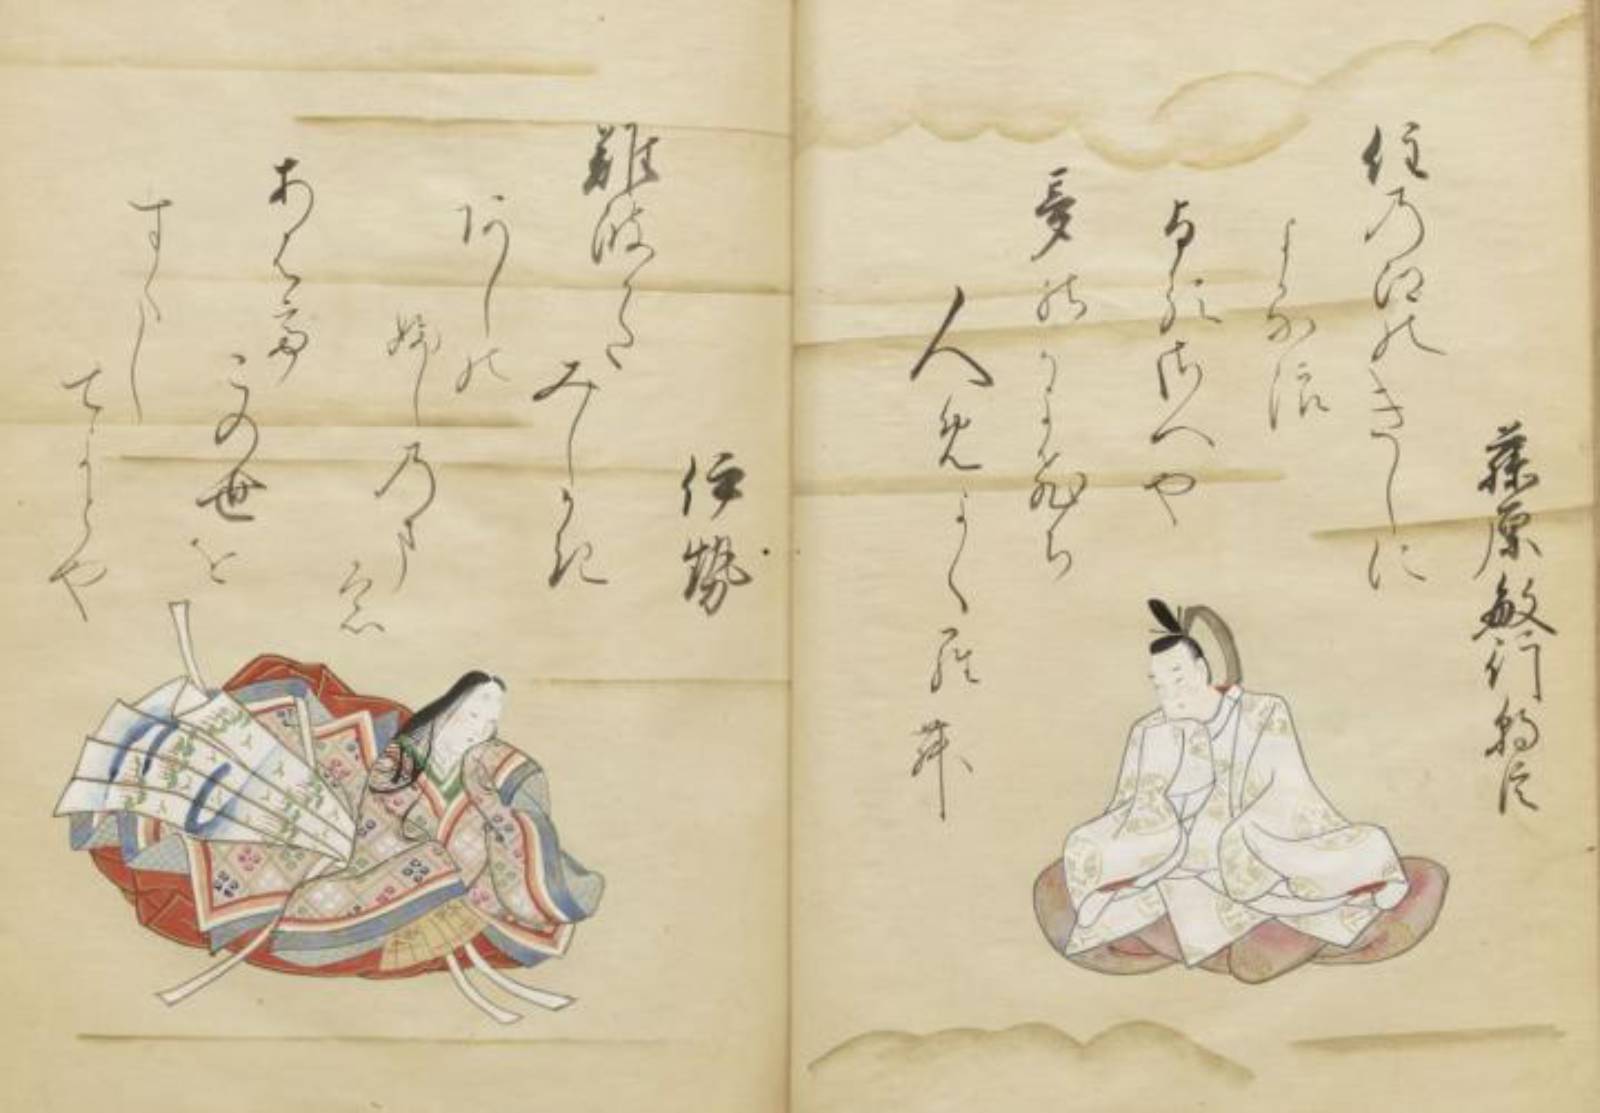 藤原敏行朝臣
住乃江のきしに
よる浪
よるさへや
夢のかよひち
人めよくらむ
伊勢
難波かた
みしかき
あしの
ふし乃まも
あはて
この世を
すくし
てよとや